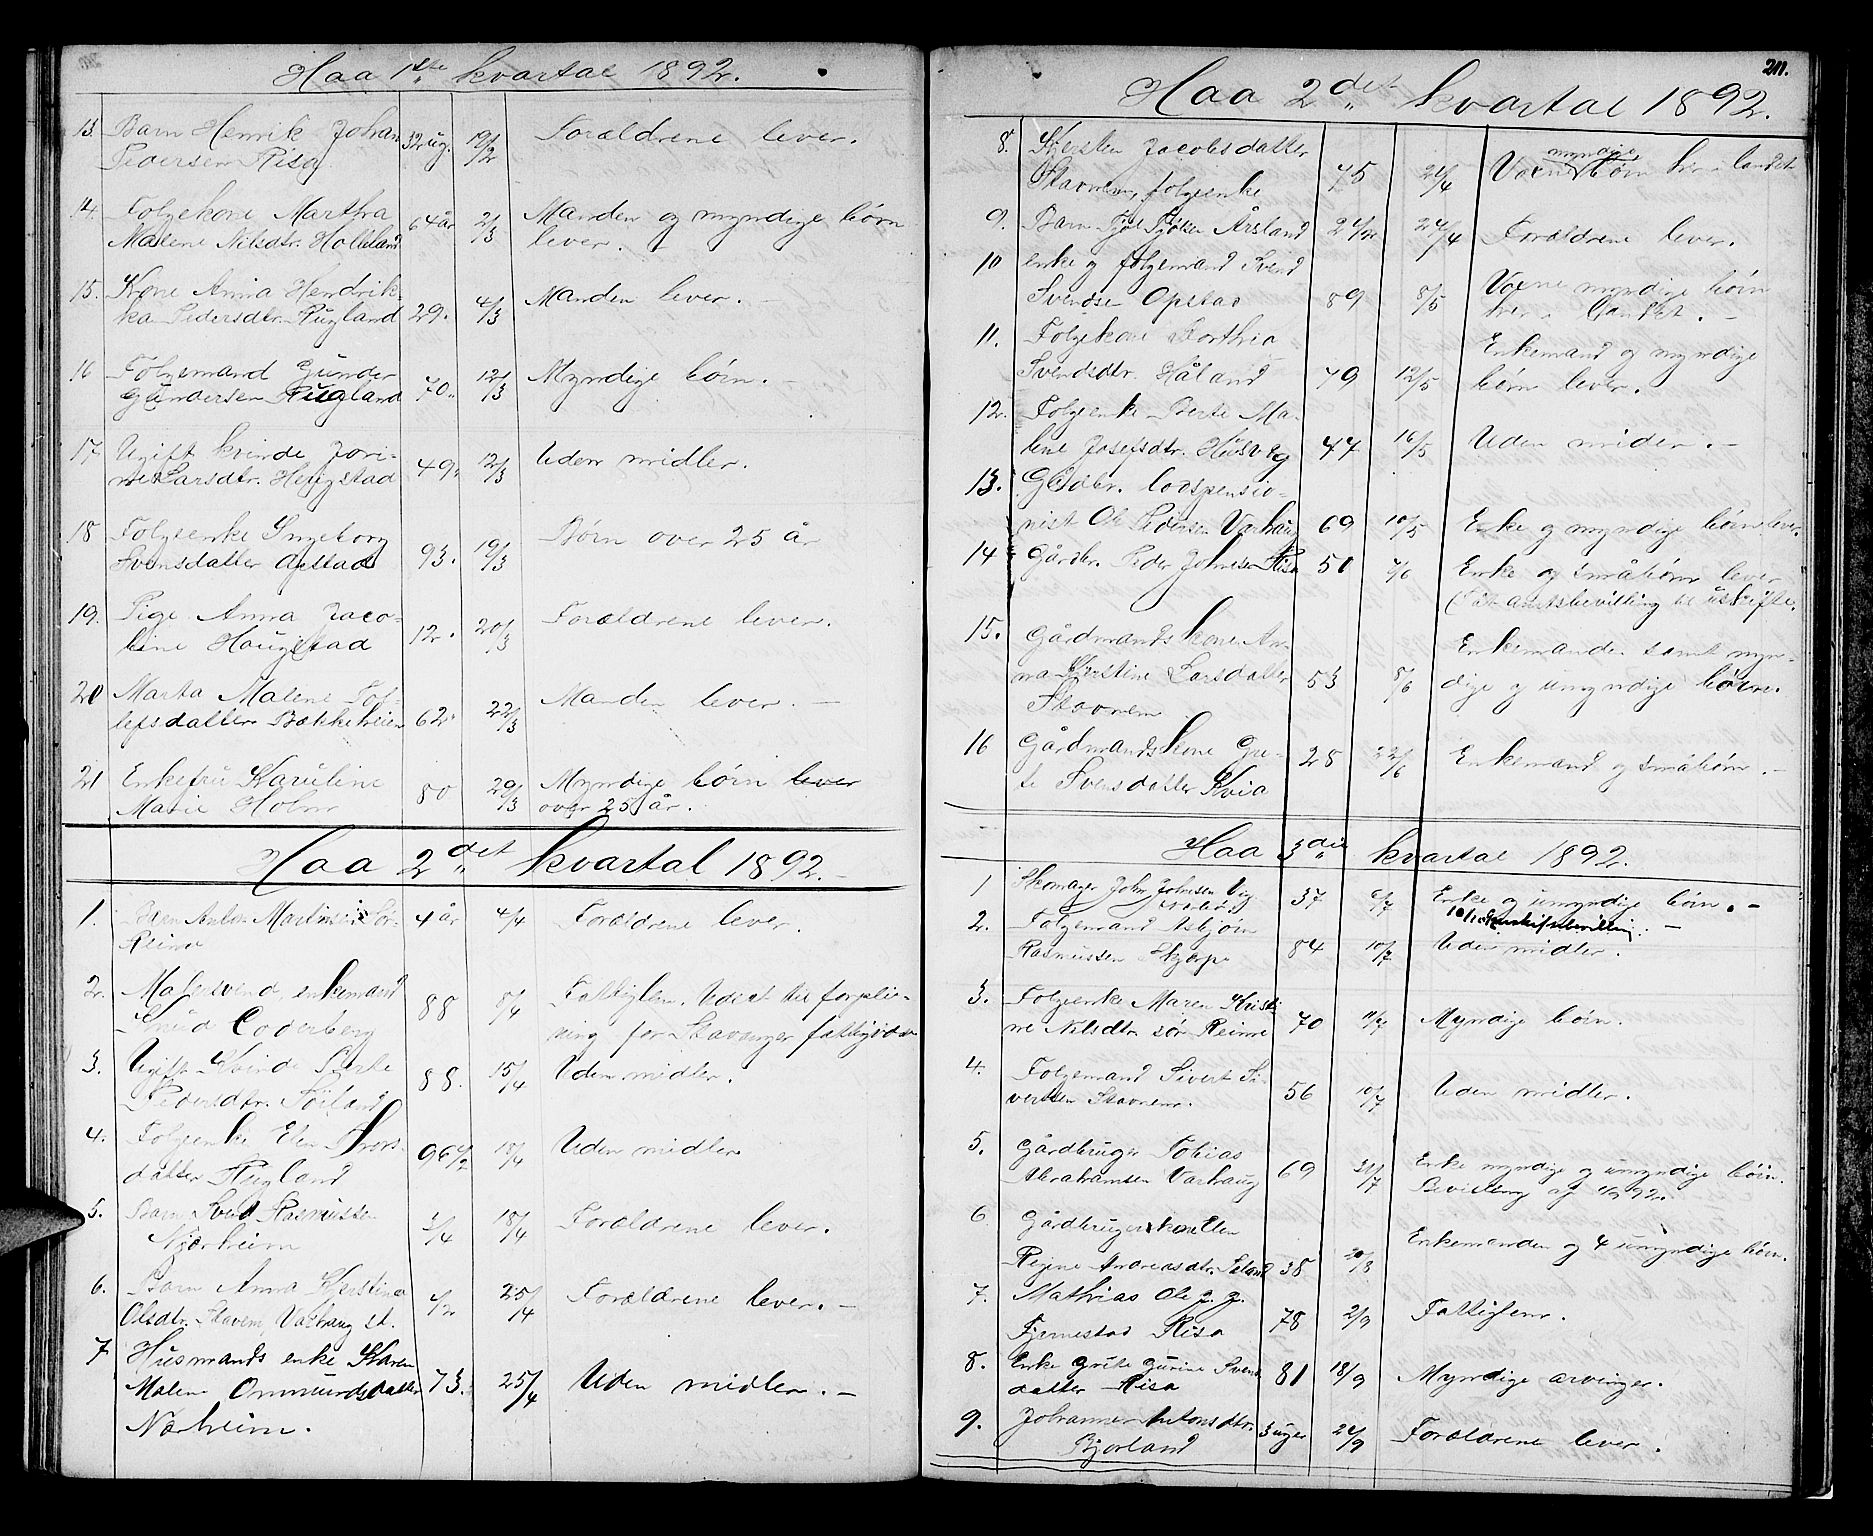 Haa 1ste kvartal 1892.
13. Barn Henrik Johan
Pedersen Risa 32 ug. 19/2 Forældrene lever.
14. Folgekone Martha
Malene Nilsdtr. Holland 64 år 2/3 Manden og myndige børn
lever.
15. Kone Anna Hendrik-
ka Pedersdtr. Rugland 29. 4/3 Manden lever. -
16 Folgemand Gunder
Gundersen Rugland 70. 12/3 Myndige børn. -
17 Ugift kvinde Jori-
ne Larsdtr. Heigstad 49. 12/3 Uden midler.
18 Folgeenke Ingeborg
Svensdatter Opstad 93. 19/3 Børn over 25 år
19. Pige Anna Jaco-
bine Haugstad 12. 20/3 Forældrene lever.
20 Marta Malene Tol-
lefsdatter Bækkeheien 62. 22/3 Manden lever. -
21 Enkefru Karuline
Marie Holm 80 29/3 Myndige børn lever
over 25 år.
Haa 2det kvartal 1892. -
1. Barn Anton Martinsen Sør-
Reime 4 år 4/4 Forældrene lever.
2. Malersvend, enkemand
Knud Coderberg 88 8/4 Fattiglem. Udsat til forplei-
ning for Stavanger
3. Ugift Kvinde Berte
Pedersdtr. Söiland 88. 15/4 Uden midler.
4. Folgeenke Elen Thors-
datter Rugland 96 1/2 18/4 Uden midler
5. Barn Svend Rasmussen
Njærheim 3/4 18/4 Forældrene lever.
6. Barn Anna Kjerstina
Olsdtr. Stavem, Varhaug st. 1/2 25/4 Forældrene lever. -
7 Husmands enke Karen
Malene Ommundsdatter 73. 25/4 Uden midler. -
Nærheim.
211.
Haa 2det kvartal 1892.
8. Kjersten Jacobsdatter
Stavnem, folgeenke 75 21/4 Voxne myndige børn her i landet
9. Barn Tjøl Tjølsen Årsland 24/4 Forældrene lever.
10 enke og folgemand Svend
Svendsen Opstad 89 8/5 Voxne myndige børn
her i landet. -
11. Folgekone Dorthia
Svendsdtr. Håland 79 12/5 Enkemand og myndige
børn lever.
12. Folgeenke Berte Ma-
lene Josefsdtr. Husveg 44 16/5 Uden midler. -
13. Gårdbr. Lodspensio-
nist Ole Pedersen Varhaug 69 10/5 Enke og myndige børn lever.
14 Gårdbr. Peder Johnsen Risa 51 7/6 Enke og småbörn lever
(Fåt amtsbevilling til uskifte.
15. Gårdmandskone An-
na Kjerstine Larsdatter 53 8/6 Enkemanden samt myn-
dige og umyndige børn.
Stavnem
16 Gårdmandskone Gu-
ri Svensdatter Kvia 28 22/6 Enkemand og småbörn. -
Haa 3die kvartal 1892.
1 Skomager John Johnsen Vig 37 6/7 Enke og umyndige börn. -
2. Folgemand Asbjörn
Rasmussen Skjærpe 84 10/7 Uden midler.
3. Folgeenke Maren Kristi-
ne Nilsdtr. sør Reime 70 11/7 Myndige börn.
4. Folgemand Sivert Si-
vertsen Stavnem. 56 10/7 Uden midler.
5. Gårdbruger Tobias
Abrahamsen Varhaug 69 21/7 Enke myndige og umyndige børn.
Bevilling af 92.
6 Gårdbrugerkone Elen
Regine Andreasdtr. 38 20/8 Enkemanden og 4 umyndige børn.
7. Mathias Ole g. g.
Fjermestad Risa 78 2/9 Fattiglem.
8. Enke Grete Gurine Svens
datter Risa 81 18/9 Myndige arvinger.
9. Johanne Antonsdtr.
Bjorland 3 uger 24/9 Forældrene lever.